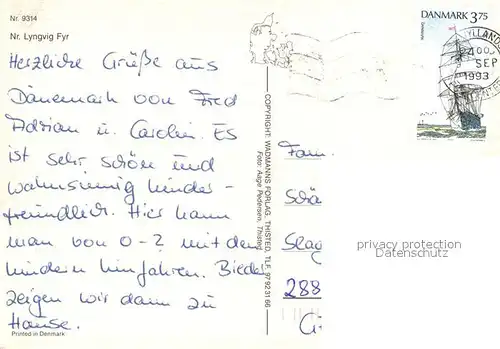 Nr. 9314
Nr. Lyngvig Fyr
Herzliche Grüße aus
Dänemark von Fred
Adrian u. Carolin. Es
ist sehr schön und
wahnsinnig kinder-
freundlich. Hier kann
man von 0-? mit den
Kindern hinfahren. Bilder
zeigen wir dann zu
Hause.
Printed in Denmark
COPYRIGHT: WADMANNS FORLAG, THISTED. TLF. 97923166
Foto: Aage Pedersen, Thisted
DANMARK 3.75
SEP
1993
Fam.
Schä
Slag
288
privacy protection
Datenschutz